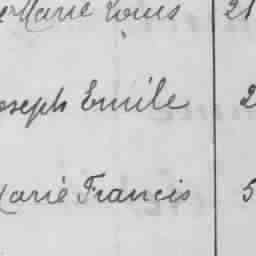 Marie Louis 21
Joseph Emile 2
Marie Francis 5